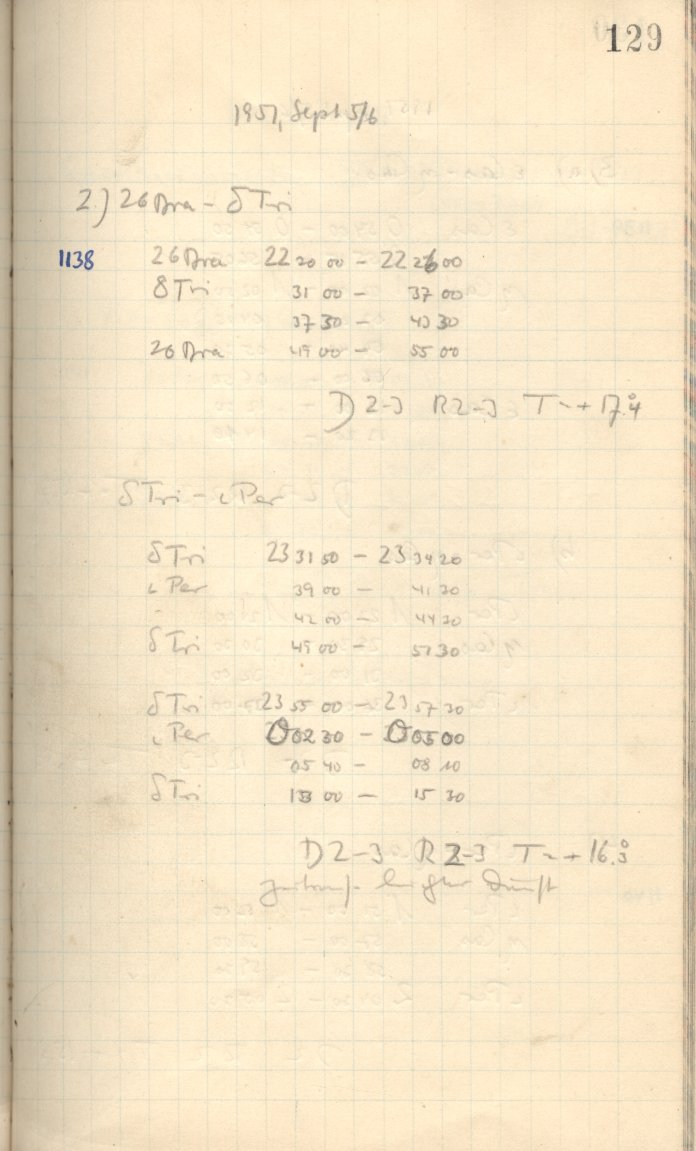 129
1951, Sept 5/6
2.) 26 Dra - δ Tri
1138 26 Dra 22 20 00 - 22 26 00
δ Tri 31 00 - 37 00
37 30 - 43 30
26 Dra 49 00 - 55 00
D 2-3 R 2-3 T ~ + 17.°4
δ Tri - ι Per
δ Tri 23 31 50 - 23 34 20
ι Per 39 00 - 41 30
" 42 00 - 44 30
δ Tri 49 00 - 51 30
δ Tri 23 55 00 - 23 57 30
ι Per 0 02 30 - 0 05 00
05 40 - 08 10
δ Tri 13 00 - 15 30
D 2-3 R 2-3 T ~ + 16.°3
zeitw. leichter Dunst